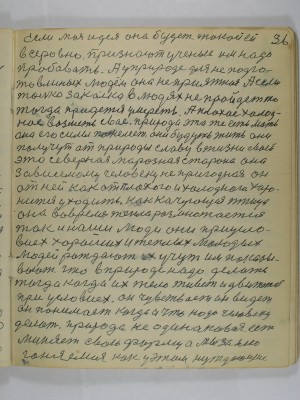 36
Если моя идея она будет такой ей
всеровно, признают ученые им надо
пробовать. А у природе для не подго-
товлиных людей она не приятная А если
только закалка в людях не пройдет то
тогда придется умереть. А плохае холод-
ное возмет свае, природа эта же есть мать
она его если пожелеет, они будуть жить они
получут от природы славу в жизни своей
это северная марозная старона она
зависимому человеку не пригодная он
от ней как от плохого и холоднога хоро-
нится уходить, как качующая птица
она вовремя тепла размножается
так и нами люди они при усло-
виех хороших и теплых молодых
людей рождают их учут им показы-
вают что в природе надо делать
тогда когда их тело живет и движется
при условиех, он чувствает он видет
он понимает когда и что надо человеку
делат, природа не одинаковая ест
миняет свою форму а мы за нею
гоняемся как у этим нуждающие